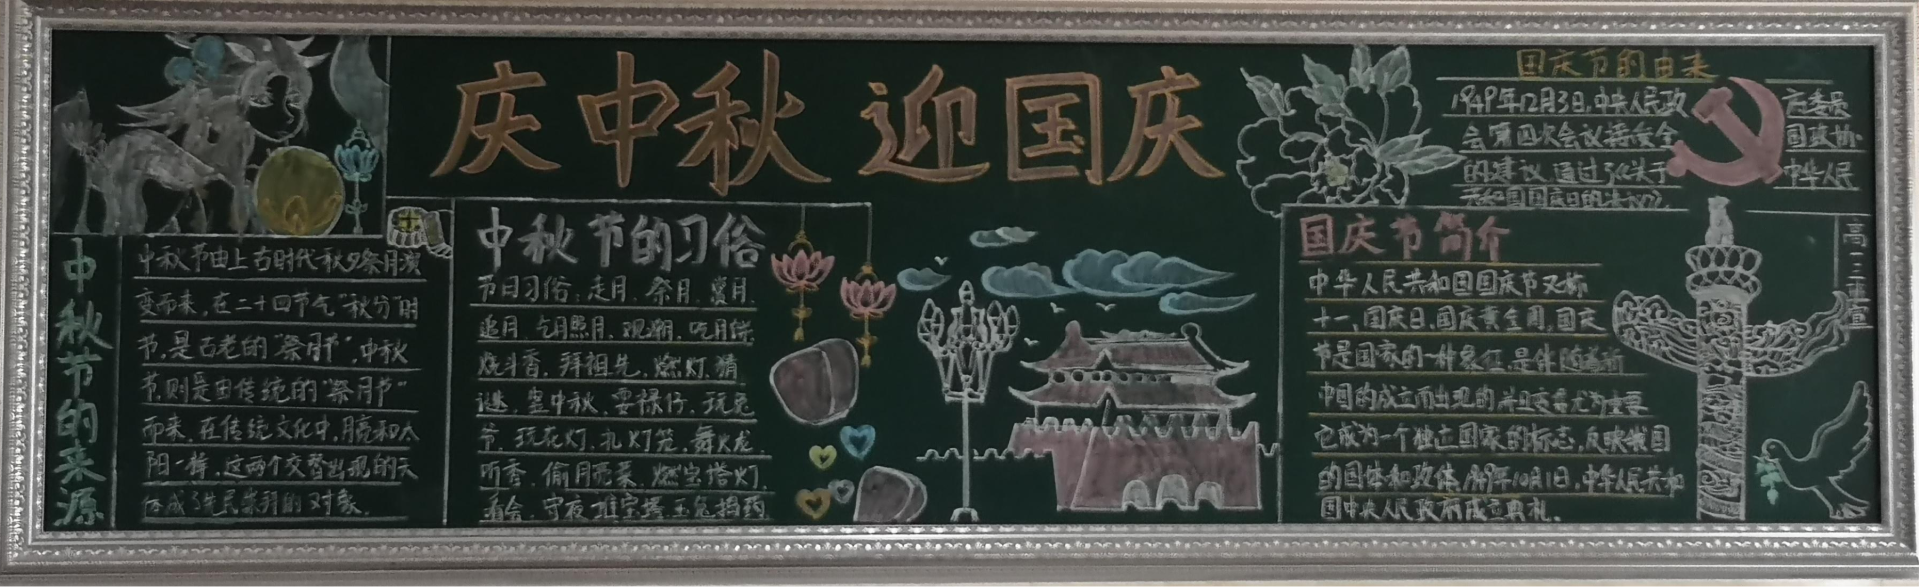 庆中秋 迎国庆
中秋节的来源
中秋节由上古时代秋夕祭月演
变而来，在二十四节气“秋分”时
节，是古老的“祭月节”，中秋
节则是由传统的“祭月节”
而来，在传统文化中，月亮和太
阳一样，这两个交替出现的天
体成了先民崇拜的对象。
中秋节的习俗
节日习俗：走月、祭月、赏月、
追月、乞月照月、观潮、吃月饼、
烧斗香、拜祖先、燃灯、猜
谜、
中秋、耍禄仔、玩兔
爷、玩花灯、扎灯笼、舞火龙
听香、偷月亮菜、燃宝塔灯、
看会、守夜、堆宝塔、玉兔捣药
国庆节的由来
1949年12月3日，中央人民政
府委员
会第四次会议接受全
国政协
的建议，通过了《关于
中华人民
共和国国庆日的决议》。
国庆节简介
中华人民共和国国庆节又称
十一、国庆日、国庆黄金周，国庆
节是国家的一种象征，是伴随着新
中国的成立而出现的，并且变得尤为重要
它成为一个独立国家的标志，反映我国
的国体和政体，1949年10月1日，中华人民共和
国中央人民政府成立典礼。
高一三
宣